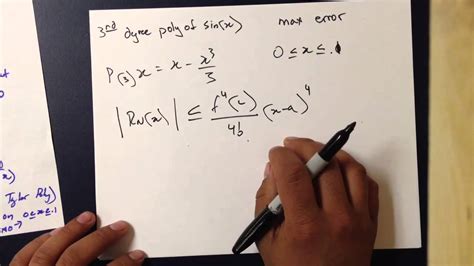 3rd dgree poly of sin(x) max error
P(3)x = x - x³/3 0 ≤ x ≤ .1
|R_N(x)| ≤ f⁴(c)/4b (x-a)⁴
Tylor Poly)
on 0≤x≤.1